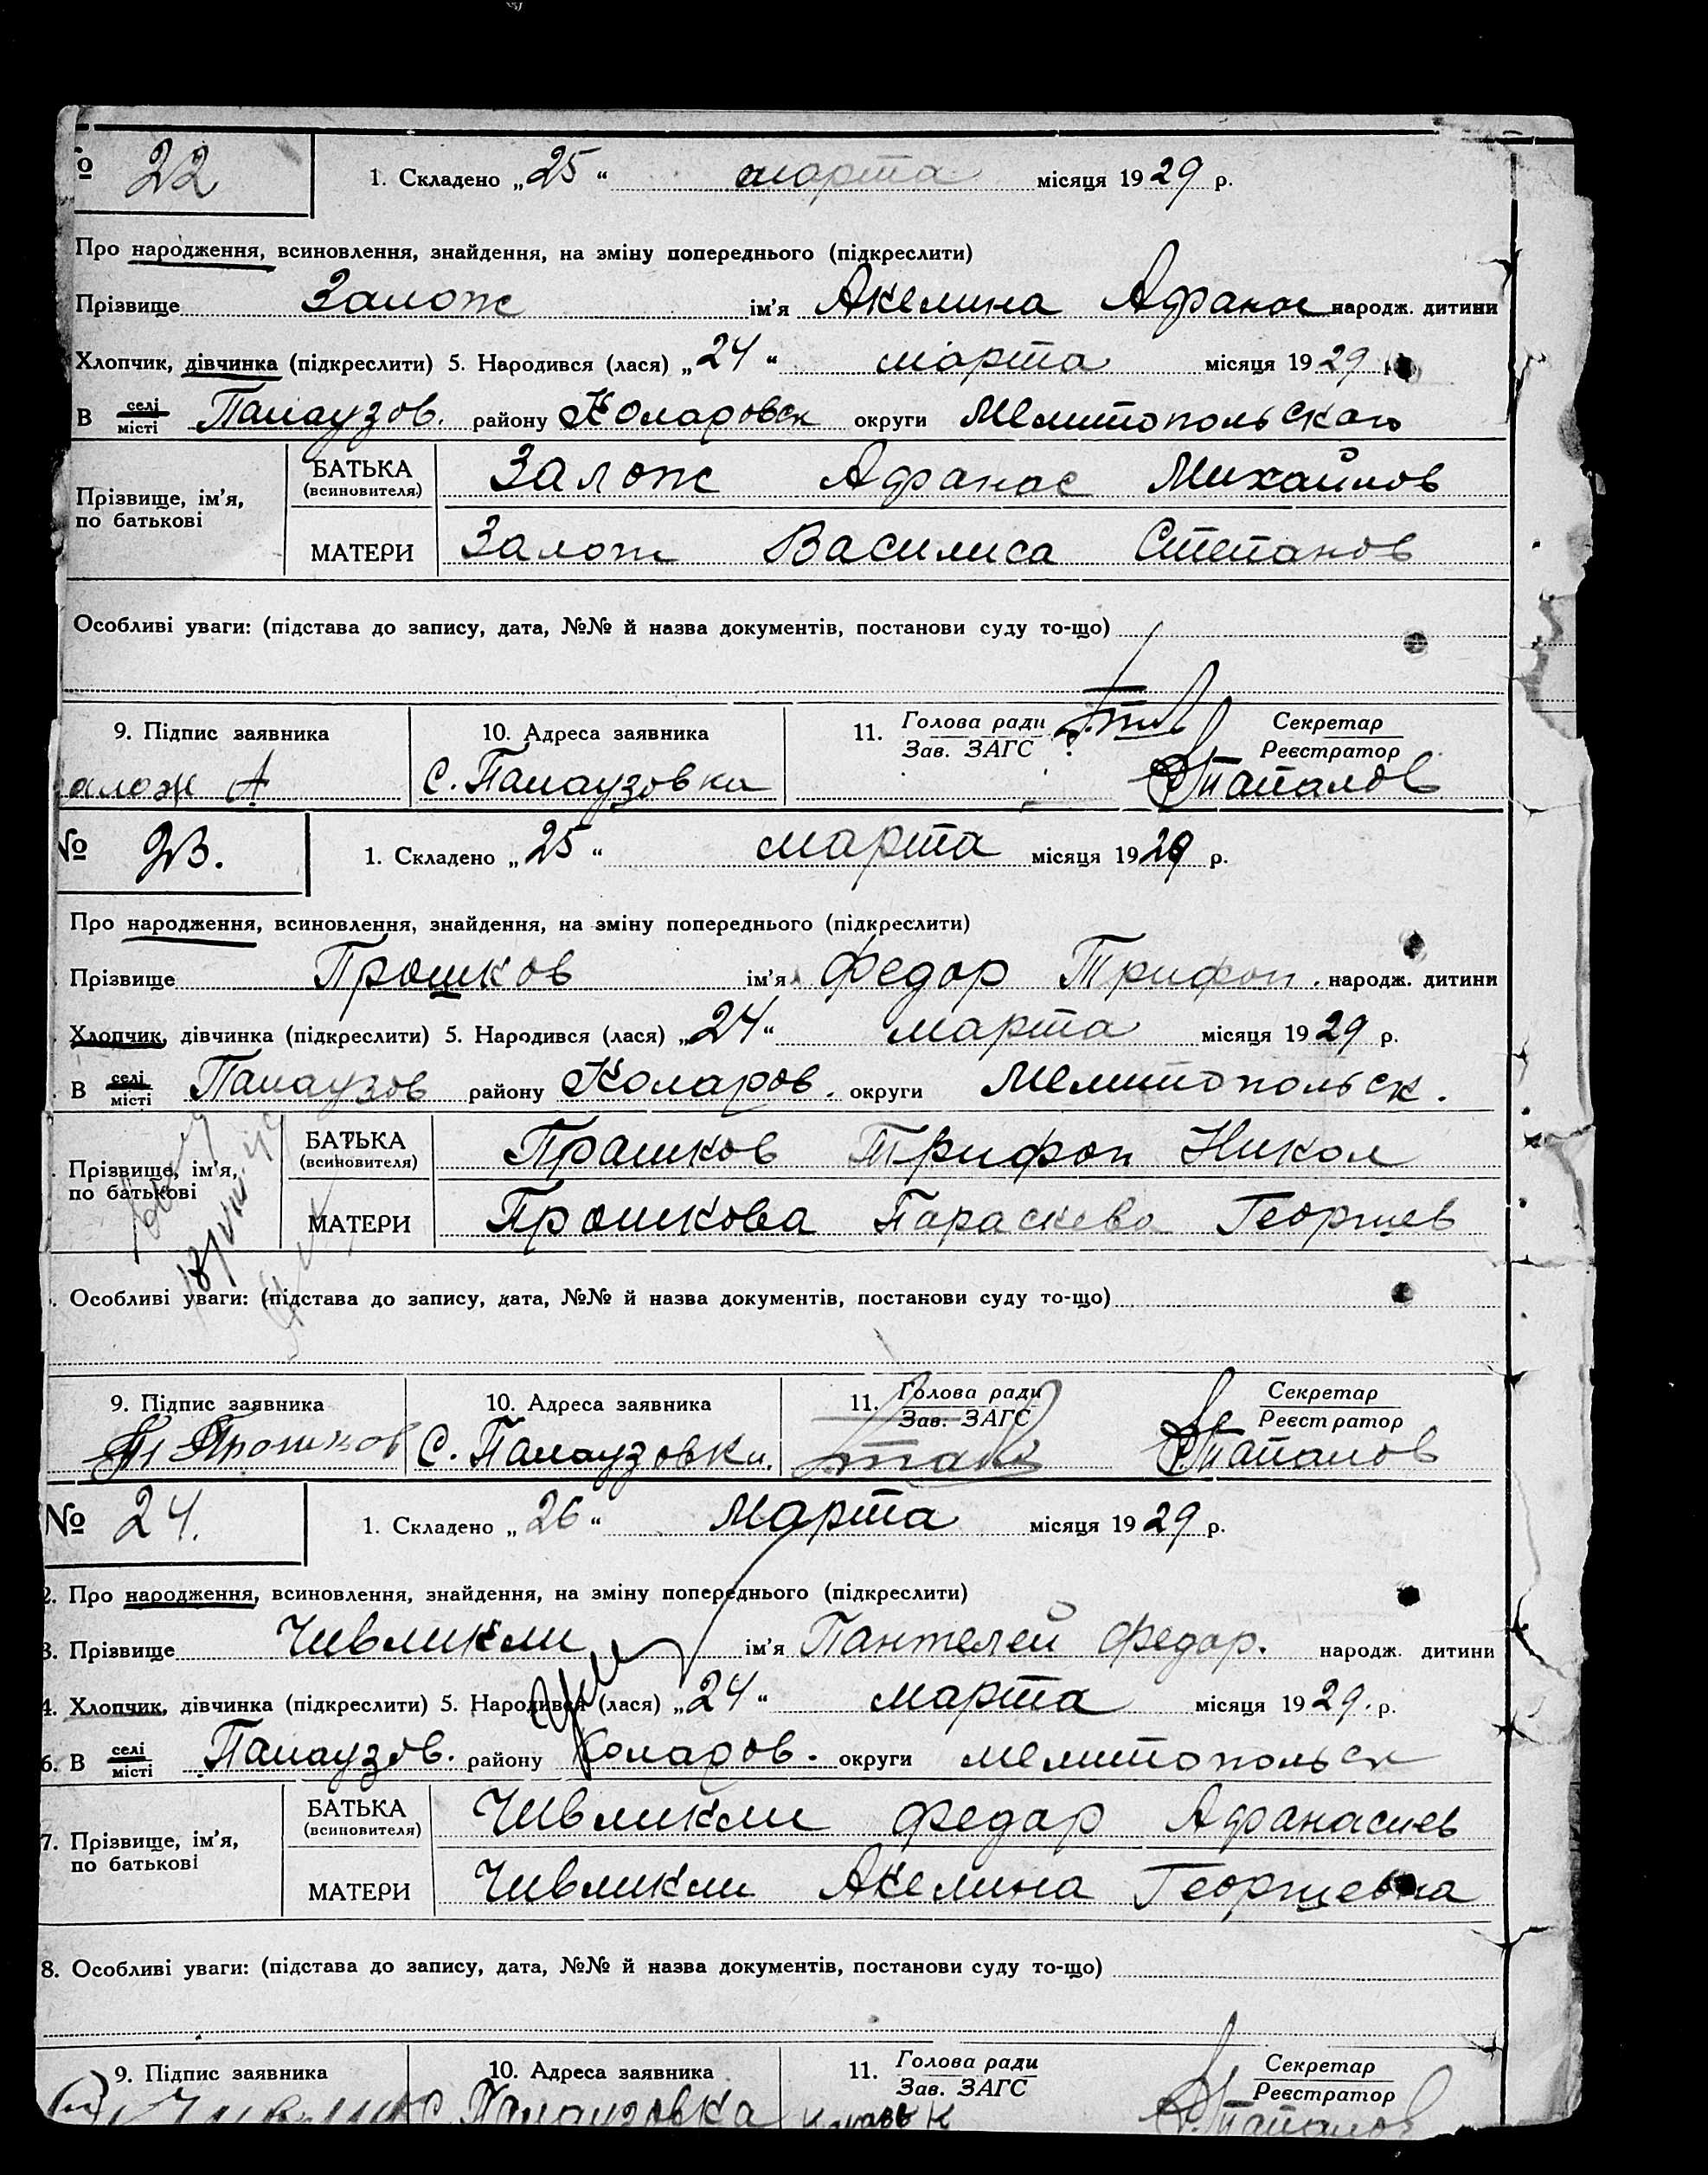 № 22
1. Складено „25“ марта місяця 1929 р.
Про народження, всиновлення, знайдення, на зміну попереднього (підкреслити)
Прізвище Залож ім'я Акелина Афанас народж. дитини
Хлопчик, дівчинка (підкреслити) 5. Народився (лася) „24“ марта місяця 1929
В селі місті Палаузов. району Коларовск округи Мелитопольского
Прізвище, ім'я, по батькові
БАТЬКА (всиновителя) Залож Афанас Михайлов
МАТЕРИ Залож Василиса Степанов
Особливі уваги: (підстава до запису, дата, №№ й назва документів, постанови суду то-що)
9. Підпис заявника 10. Адреса заявника 11. Голова ради Секретар
Зав. ЗАГС Реєстратор
алож А С. Палаузовка
№ 23.
1. Складено „25“ марта місяця 1929 р.
Про народження, всиновлення, знайдення, на зміну попереднього (підкреслити)
Прізвище Прошков ім'я Федор Трифон. народж. дитини
Хлопчик, дівчинка (підкреслити) 5. Народився (лася) „24“ марта місяця 1929 р.
В селі місті Палаузов району Коларов. округи Мелитопольск.
Прізвище, ім'я, по батькові
БАТЬКА (всиновителя) Прашков Трифон Никол
МАТЕРИ Прошкова Параскева Георгиев
Особливі уваги: (підстава до запису, дата, №№ й назва документів, постанови суду то-що)
9. Підпис заявника 10. Адреса заявника 11. Голова ради Секретар
Зав. ЗАГС Реєстратор
Прошков С. Палаузовки.
№ 24.
1. Складено „26“ Марта місяця 1929 р.
2. Про народження, всиновлення, знайдення, на зміну попереднього (підкреслити)
3. Прізвище Чивликли ім'я Пантелей Федор. народж. дитини
4. Хлопчик, дівчинка (підкреслити) 5. Народився (лася) „24“ марта місяця 1929. р.
6. В селі місті Палаузов. району Коларов. округи мелитопольск
7. Прізвище, ім'я, по батькові
БАТЬКА (всиновителя) Чивликли Федар Афанасиев
МАТЕРИ Чивликли Акелина Георгиевна
8. Особливі уваги: (підстава до запису, дата, №№ й назва документів, постанови суду то-що)
9. Підпис заявника 10. Адреса заявника 11. Голова ради Секретар
Зав. ЗАГС Реєстратор
С Палаузовка